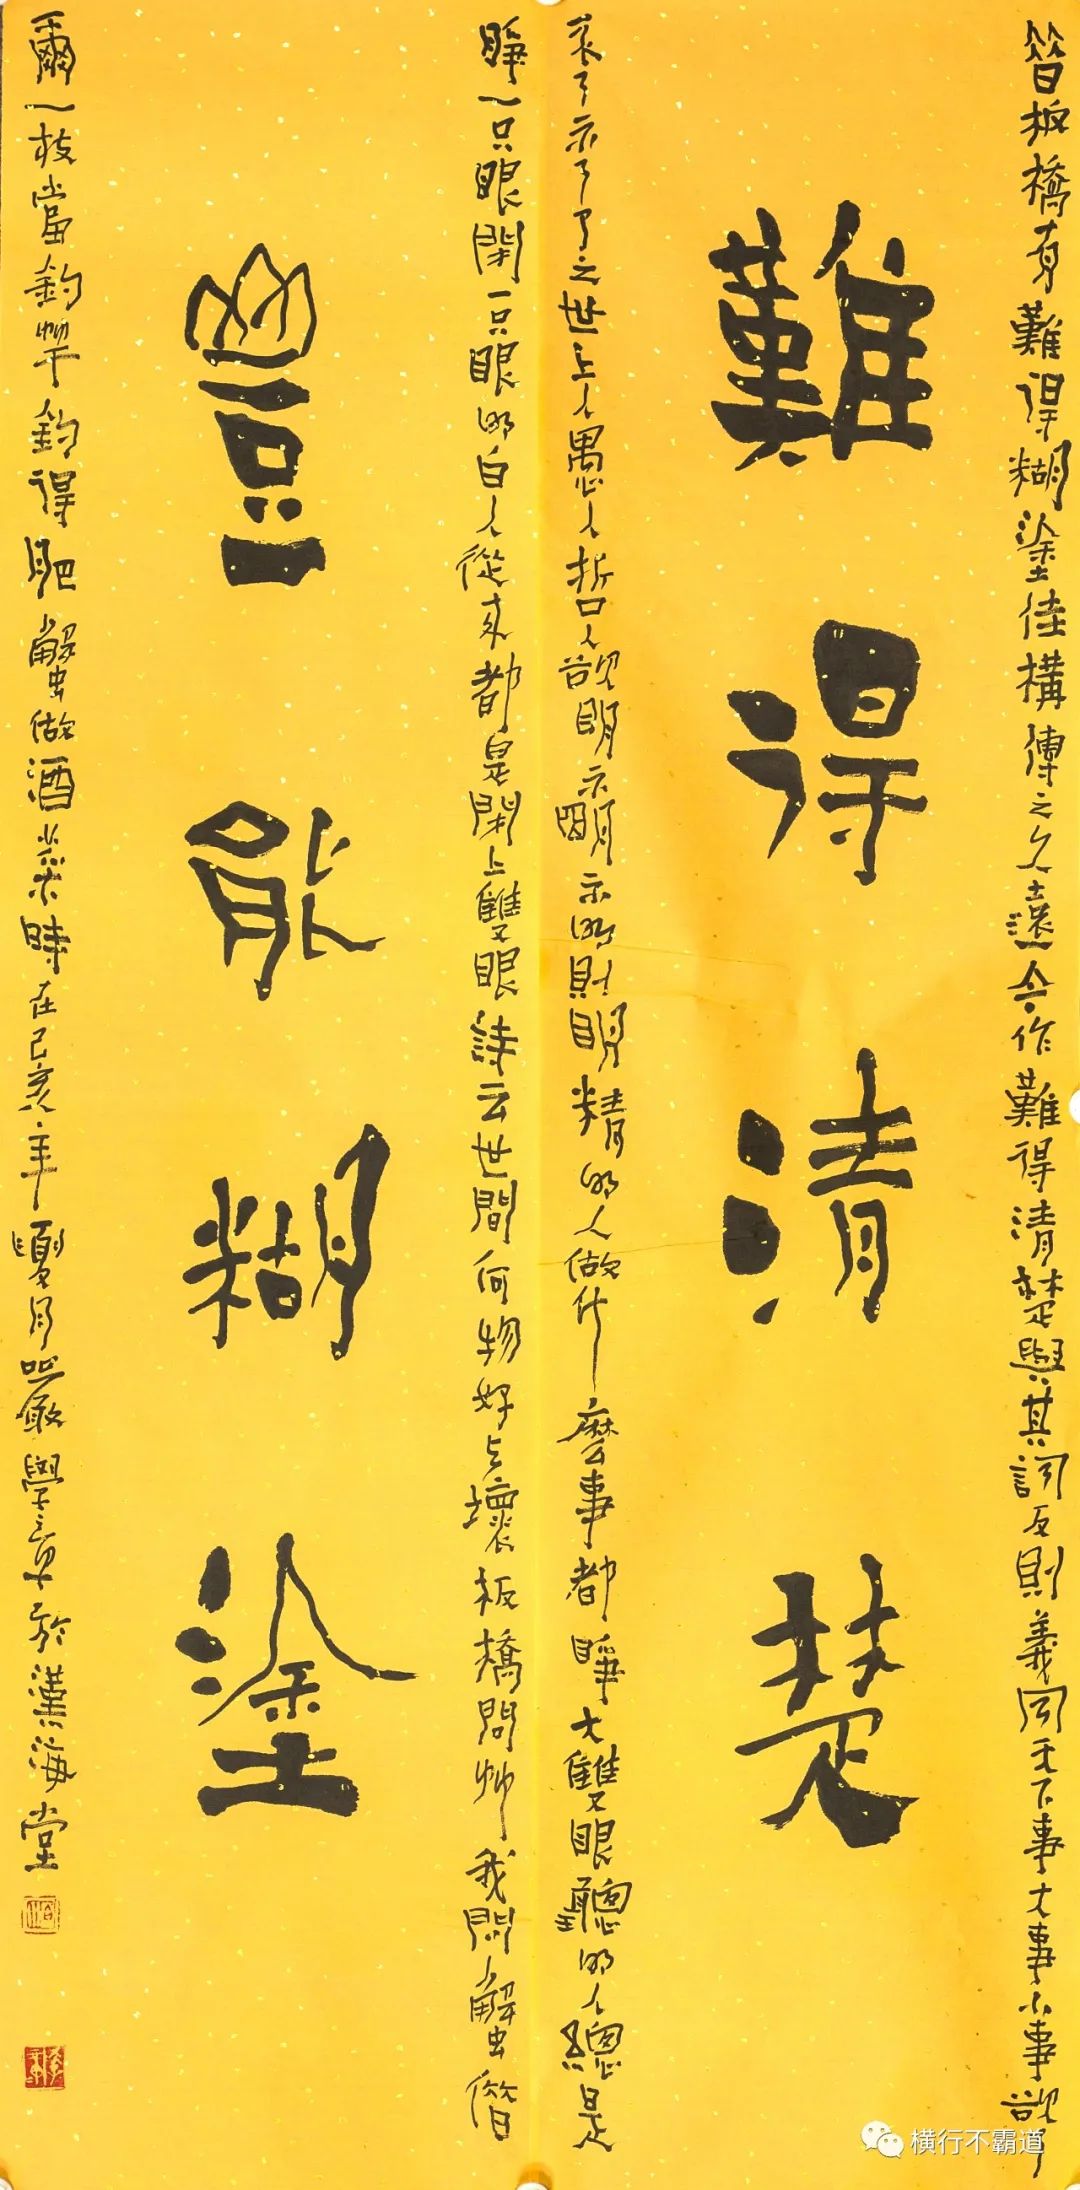 昔板橋有難得糊塗佳構傳之久遠今作難得清楚與其詞反則義同天下事大事小事欲了
難得清楚
未了亦了了之世上人愚人哲人欲明亦明亦明則明精的人做什麼事都睜大雙眼聰的人總是
睜一只眼閉一只眼明白人從來都是閉上雙眼詩云世間何物好与壞板橋問竹我問蟹借
豈能糊塗
爾一枝當釣竿釣得肥蟹做酒菜時在己亥年夏月嚴學章於漢海堂
横行不霸道